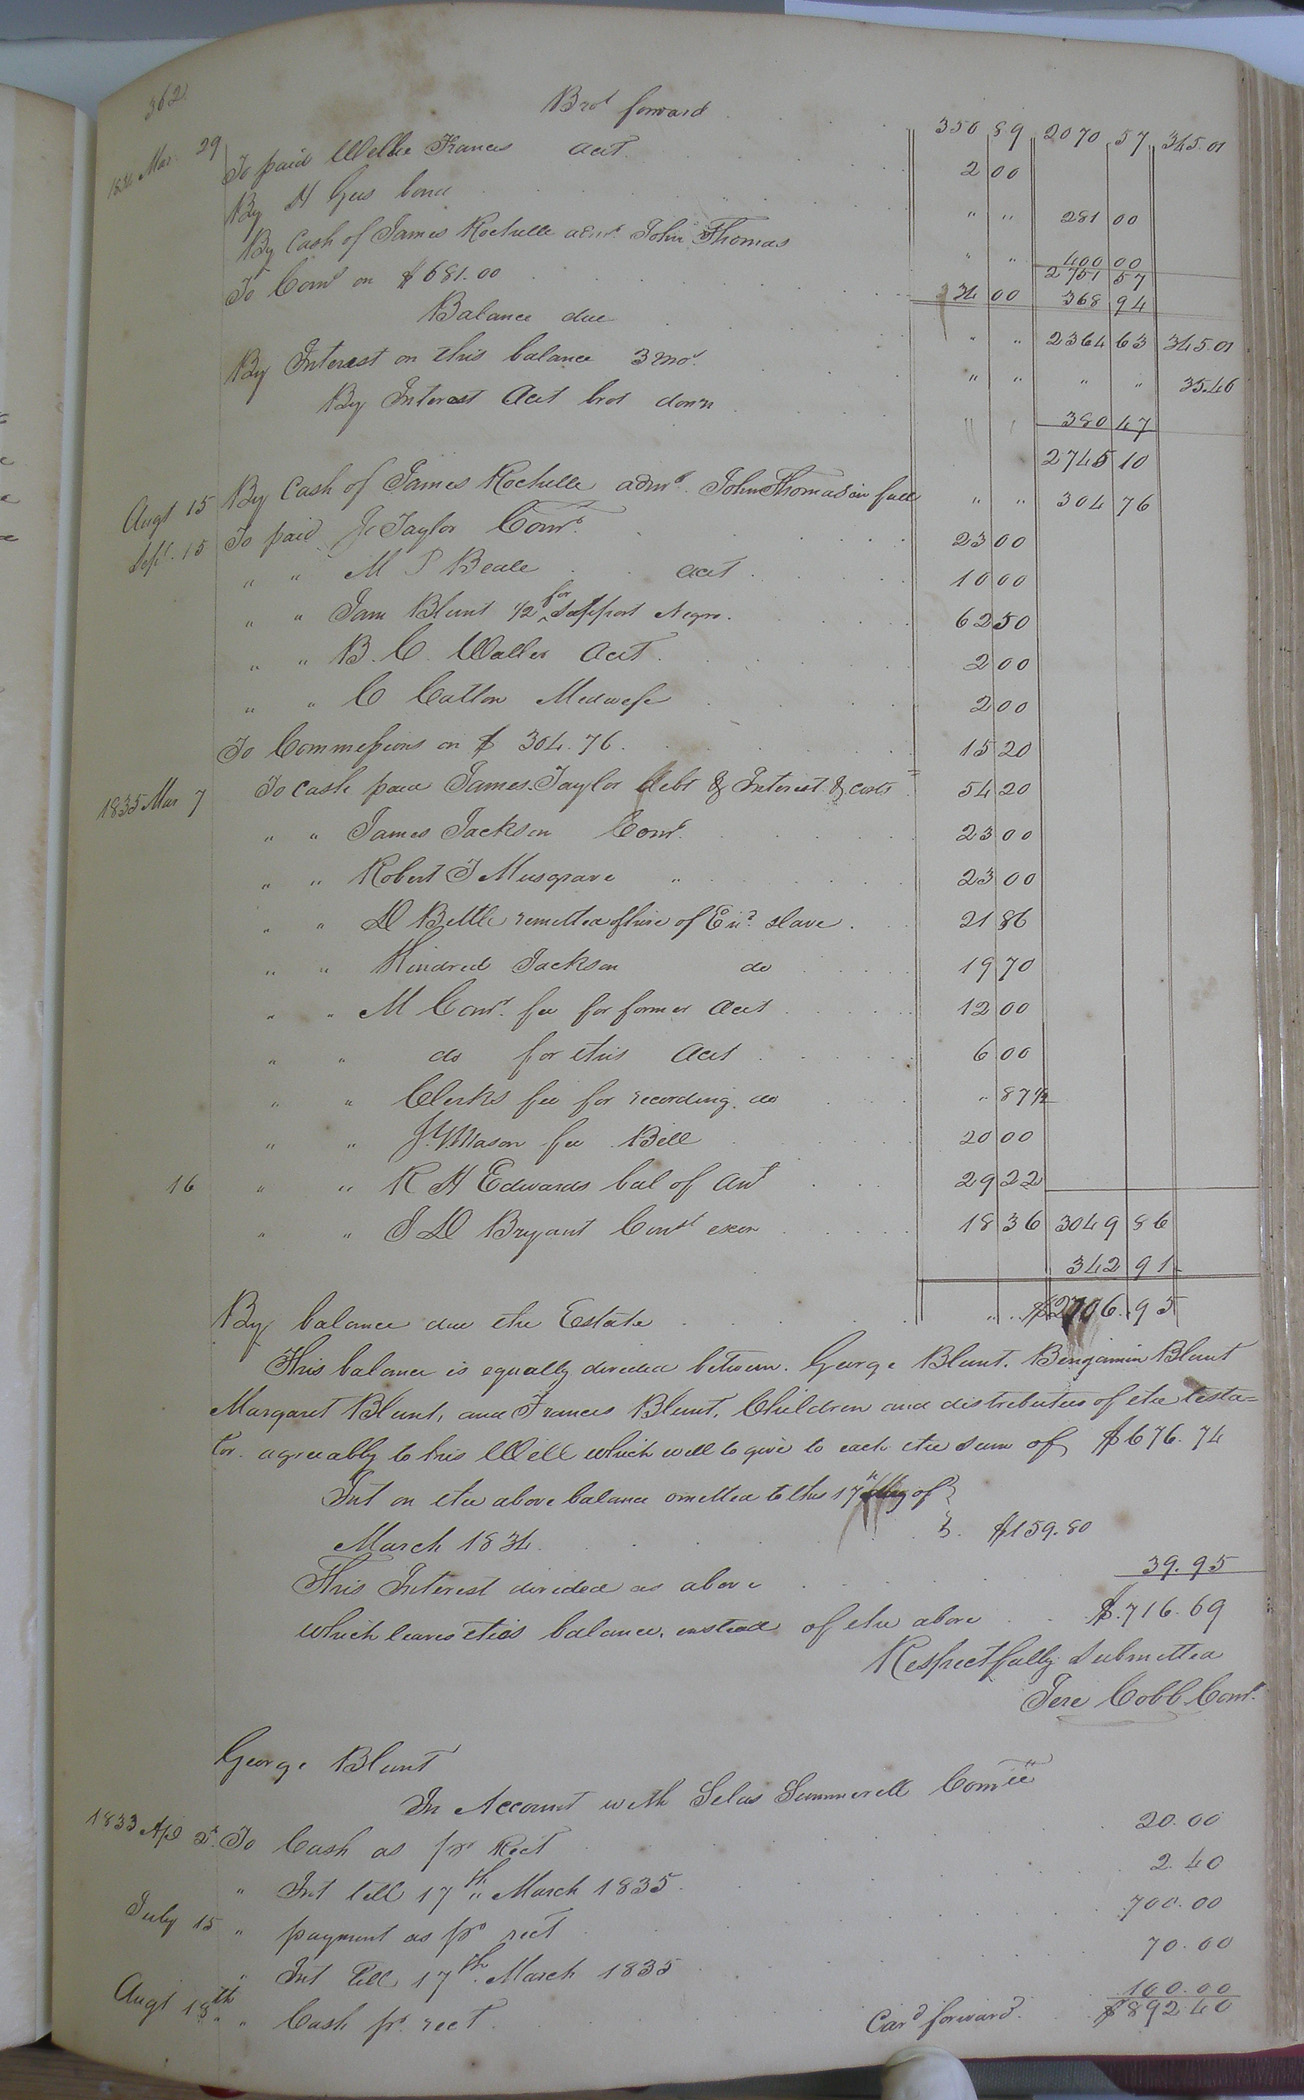 362
Brot forward 350 89 2070 57 345.01
1834 Mar 29 To paid Willie Francis acct. 2 00
By H Gees bond " " 281 00
By Cash of James Rochelle admr. John Thomas " " 400 00
2751 57
To Comr on $681.00 34 00 368 94
Balance due " " 2364 63 345.01
By Interest on this balance 3 mos. " " " " 35.46
By Interest Acct brot down 380 47
2745 10
Augt 15 By Cash of James Rochelle admr. John Thomas in full " " 304 76
Sept. 15 To paid J Taylor Comr. 23 00
" " M P Beale acct 10 00
" " Sam Blunt 1/2 for support Negro. 62 50
" " B. C. Waller acct. 2 00
" " C Catton Medwife 2 00
To Commissions on $304.76. 15 20
1835 Mar 7 To cash paid James Taylor debt & Interest & costs 54 20
" " James Jackson Comr. 23 00
" " Robert T Musgrave " 23 00
" " D Bettle remitted of hire of Eud. slave. 21 86
" " Kindred Jackson do 19 70
" " M Comr. fee for former acct 12 00
" " do for this acct 6 00
" " Clerks fee for recording do " 87 1/2
" " J. Y Mason fee Bill 20 00
16 " " R H Edwards bal of ant 29 22
" " J D Bryant Const exon 18 36 3049 86
342 91
By balance due the Estate " " $2706.95
This balance is equally divided between. George Blunt. Benjamin Blunt
Margaret Blunt, and Frances Blunt. Children and distributees of the testa=
tor. agreeably to his Will which will to give to each the sum of $676.74
Int on the above balance omitted to the 17th day of
March 1834. $159.80
This Interest divided as above 39.95
which leaves this balance, instead of the above $.716.69
Respectfully submitted
Jere Cobb Comr.
George Blunt
In Account with Selas Summerell Comtee
1833 Apl 2d. To Cash as pr Rect 20.00
" Int till 17th March 1835. 2.40
July 15 " payment as pr rect 700.00
" Int till 17th. March 1835 70.00
Augt 13th " Cash pr. rect. 100.00
Card forward. $892.40